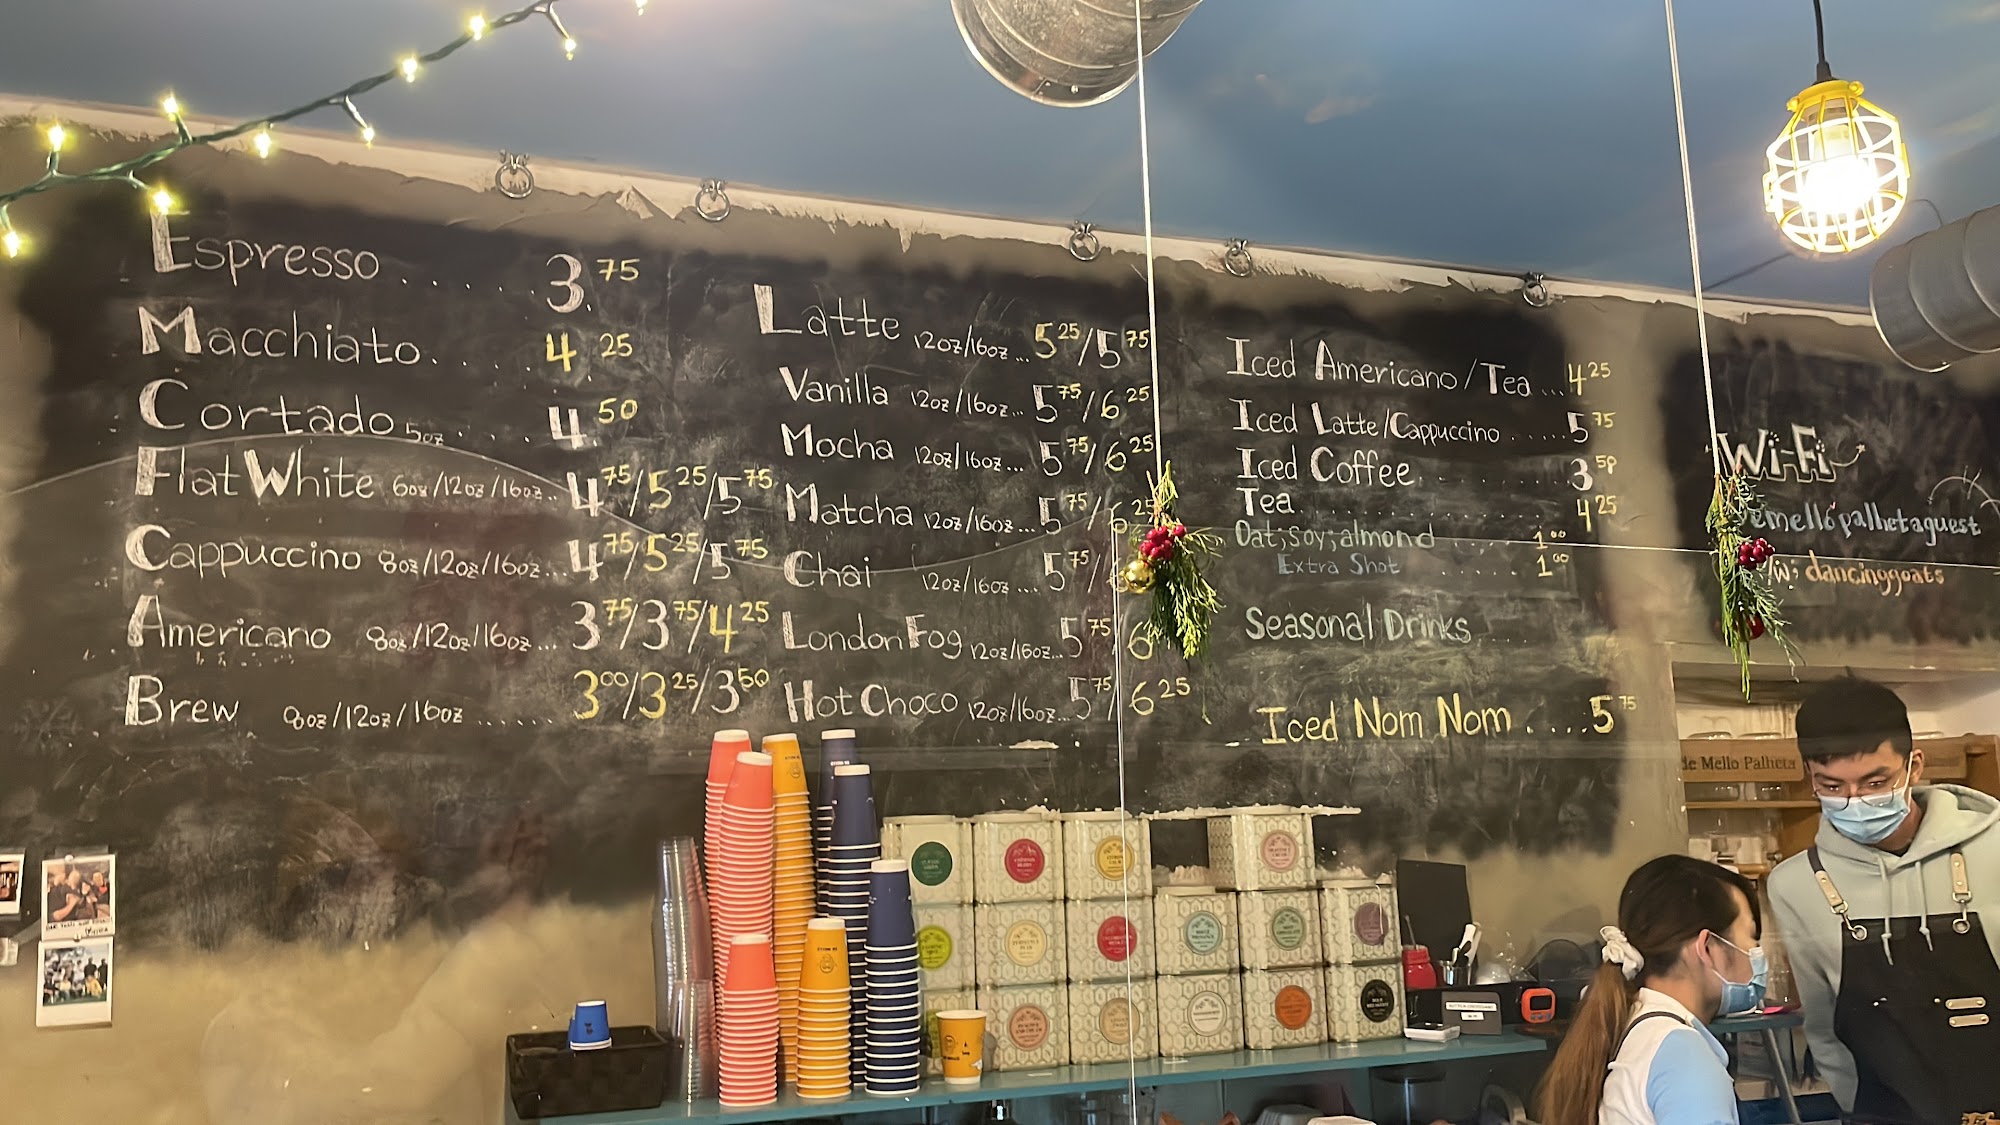 Espresso ...... 3.75
Macchiato ..... 4 25
Cortado 5oz .... 4.50
Flat White 6oz/12oz/16oz.. 4 75/5 25/5 75
Cappuccino 8oz/12oz/16oz... 4 75/5 25/5 75
Americano 8oz/12oz/16oz... 3 75/3 75/4 25
Brew 8oz/12oz/16oz ...... 3 00/3 25/3 50
Latte 12oz/16oz... 5 25/5 75
Vanilla 12oz/16oz... 5 75/6 25
Mocha 12oz/16oz... 5 75/6 25
Matcha 12oz/16oz... 5 75/6 25
Chai 12oz/16oz.... 5 75/
London Fog 12oz/16oz... 5 75/6
Hot Choco 12oz/16oz... 5 75/6 25
Iced Americano/Tea ... 4 25
Iced Latte/Cappuccino ..... 5 75
Iced Coffee ......... 3 50
Tea ............ 4 25
Oat;soy;almond ..... 1 00
Extra Shot ..... 1 00
Seasonal Drinks
Iced Nom Nom ....5 75
Wi-Fi
demellopalhetaguest
dancinggoats
de Mello Palheta